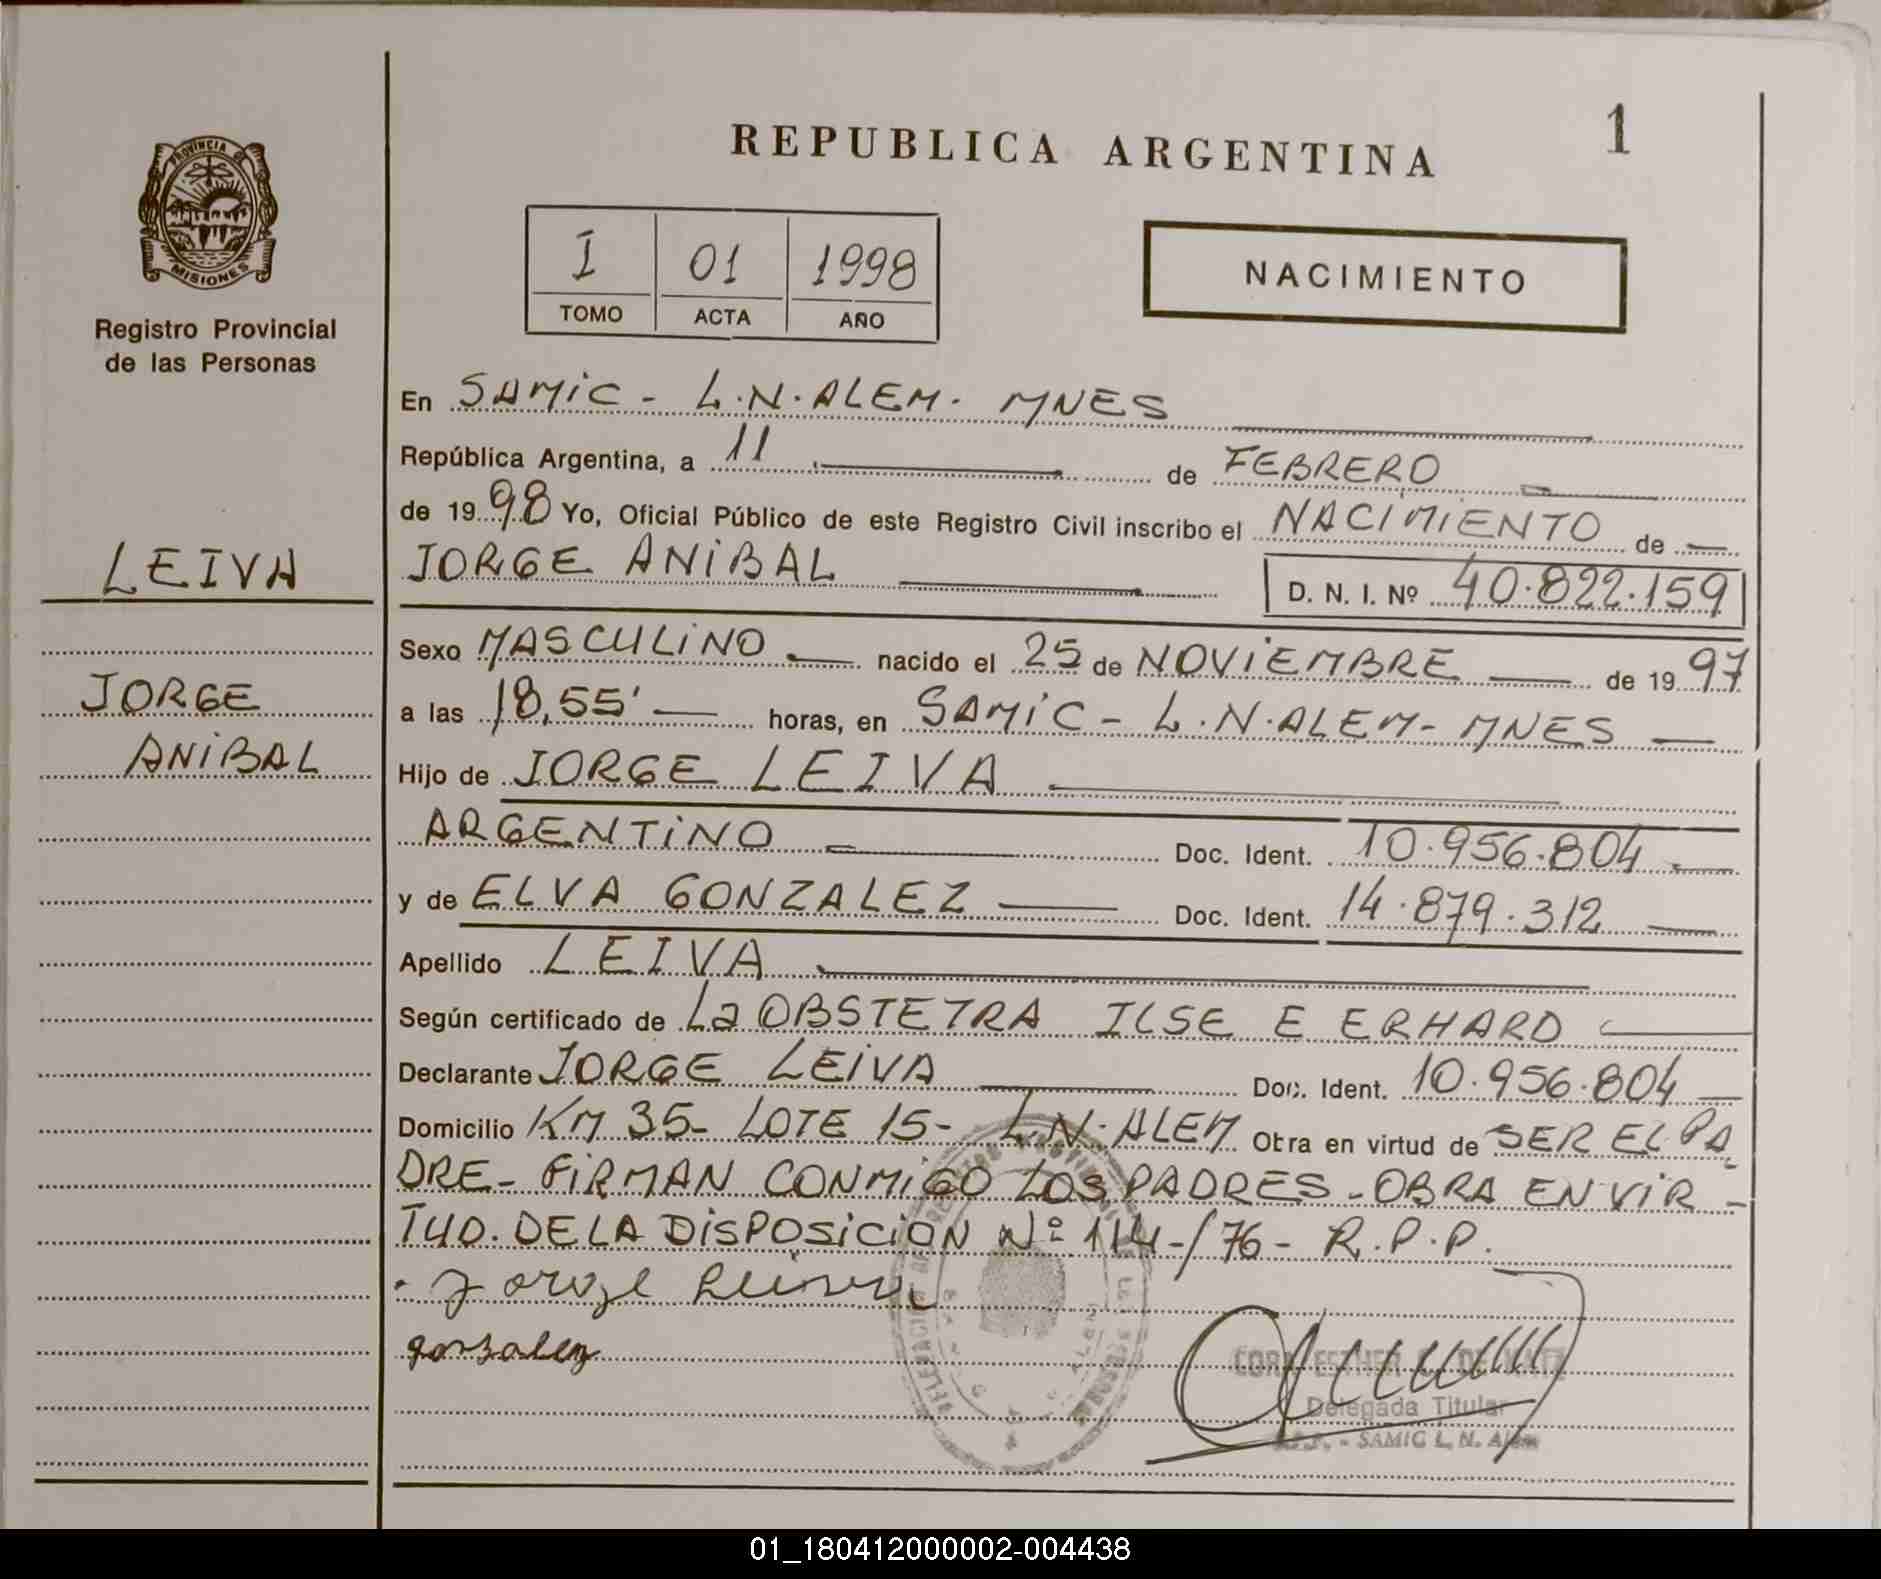 REPUBLICA ARGENTINA
1
PROVINCIA DE
MISIONES
Registro Provincial
de las Personas
I 01 1998
TOMO ACTA AÑO
NACIMIENTO
En SAMIC - L.N.ALEM. MNES
República Argentina, a 11 de FEBRERO
de 1998 Yo, Oficial Público de este Registro Civil inscribo el NACIMIENTO de
LEIVA
JORGE ANIBAL D. N. I. Nº 40.822.159
Sexo MASCULINO nacido el 25 de NOVIEMBRE de 1997
JORGE
a las 18,55' horas, en SAMIC - L.N.ALEM - MNES
ANIBAL
Hijo de JORGE LEIVA
ARGENTINO Doc. Ident. 10.956.804
y de ELVA GONZALEZ Doc. Ident. 14.879.312
Apellido LEIVA
Según certificado de La OBSTETRA ILSE E ERHARD
Declarante JORGE LEIVA Doc. Ident. 10.956.804
Domicilio KM 35- LOTE 15- L.N.ALEM Obra en virtud de SER EL PA
DRE- FIRMAN CONMIGO LOS PADRES - OBRA EN VIR-
TUD. DE LA DISPOSICION Nº 114-/76- R.P.P.
Jorge Leiva
gonzalez
Delegada Titular
R.P.P. - SAMIC L. N. Alem
01_180412000002-004438